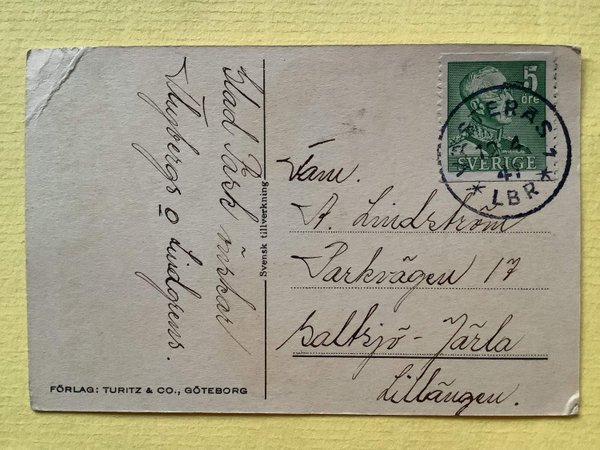 Glad Påsk önskar
o Lindgrens.
Svensk tillverkning
FÖRLAG: TURITZ & CO., GÖTEBORG
5
öre
SVERIGE
VÄSTERÅS 1
41
* LBR *
Fam.
A. Lindström
Parkvägen 17
Saltsjö-Järla
Lillängen.